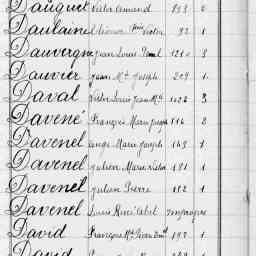 Dauguet Victor Armand 193 0
Daulaine Etienne Victor 92 1
Dauvergne Jean Louis Paul 1210 3
Dauvier Jean Mie Joseph 209 1
Daval Victor Louis Jean Mie 1028 3
Davené François Marie Joseph 116 2
Davenel Ange Marie Joseph 143 1
Davenel Julien Marie Victor 181 1
Davenel Julien Pierre 182 1
Davenel Louis René
David François Mie Jean 193 1
David 1